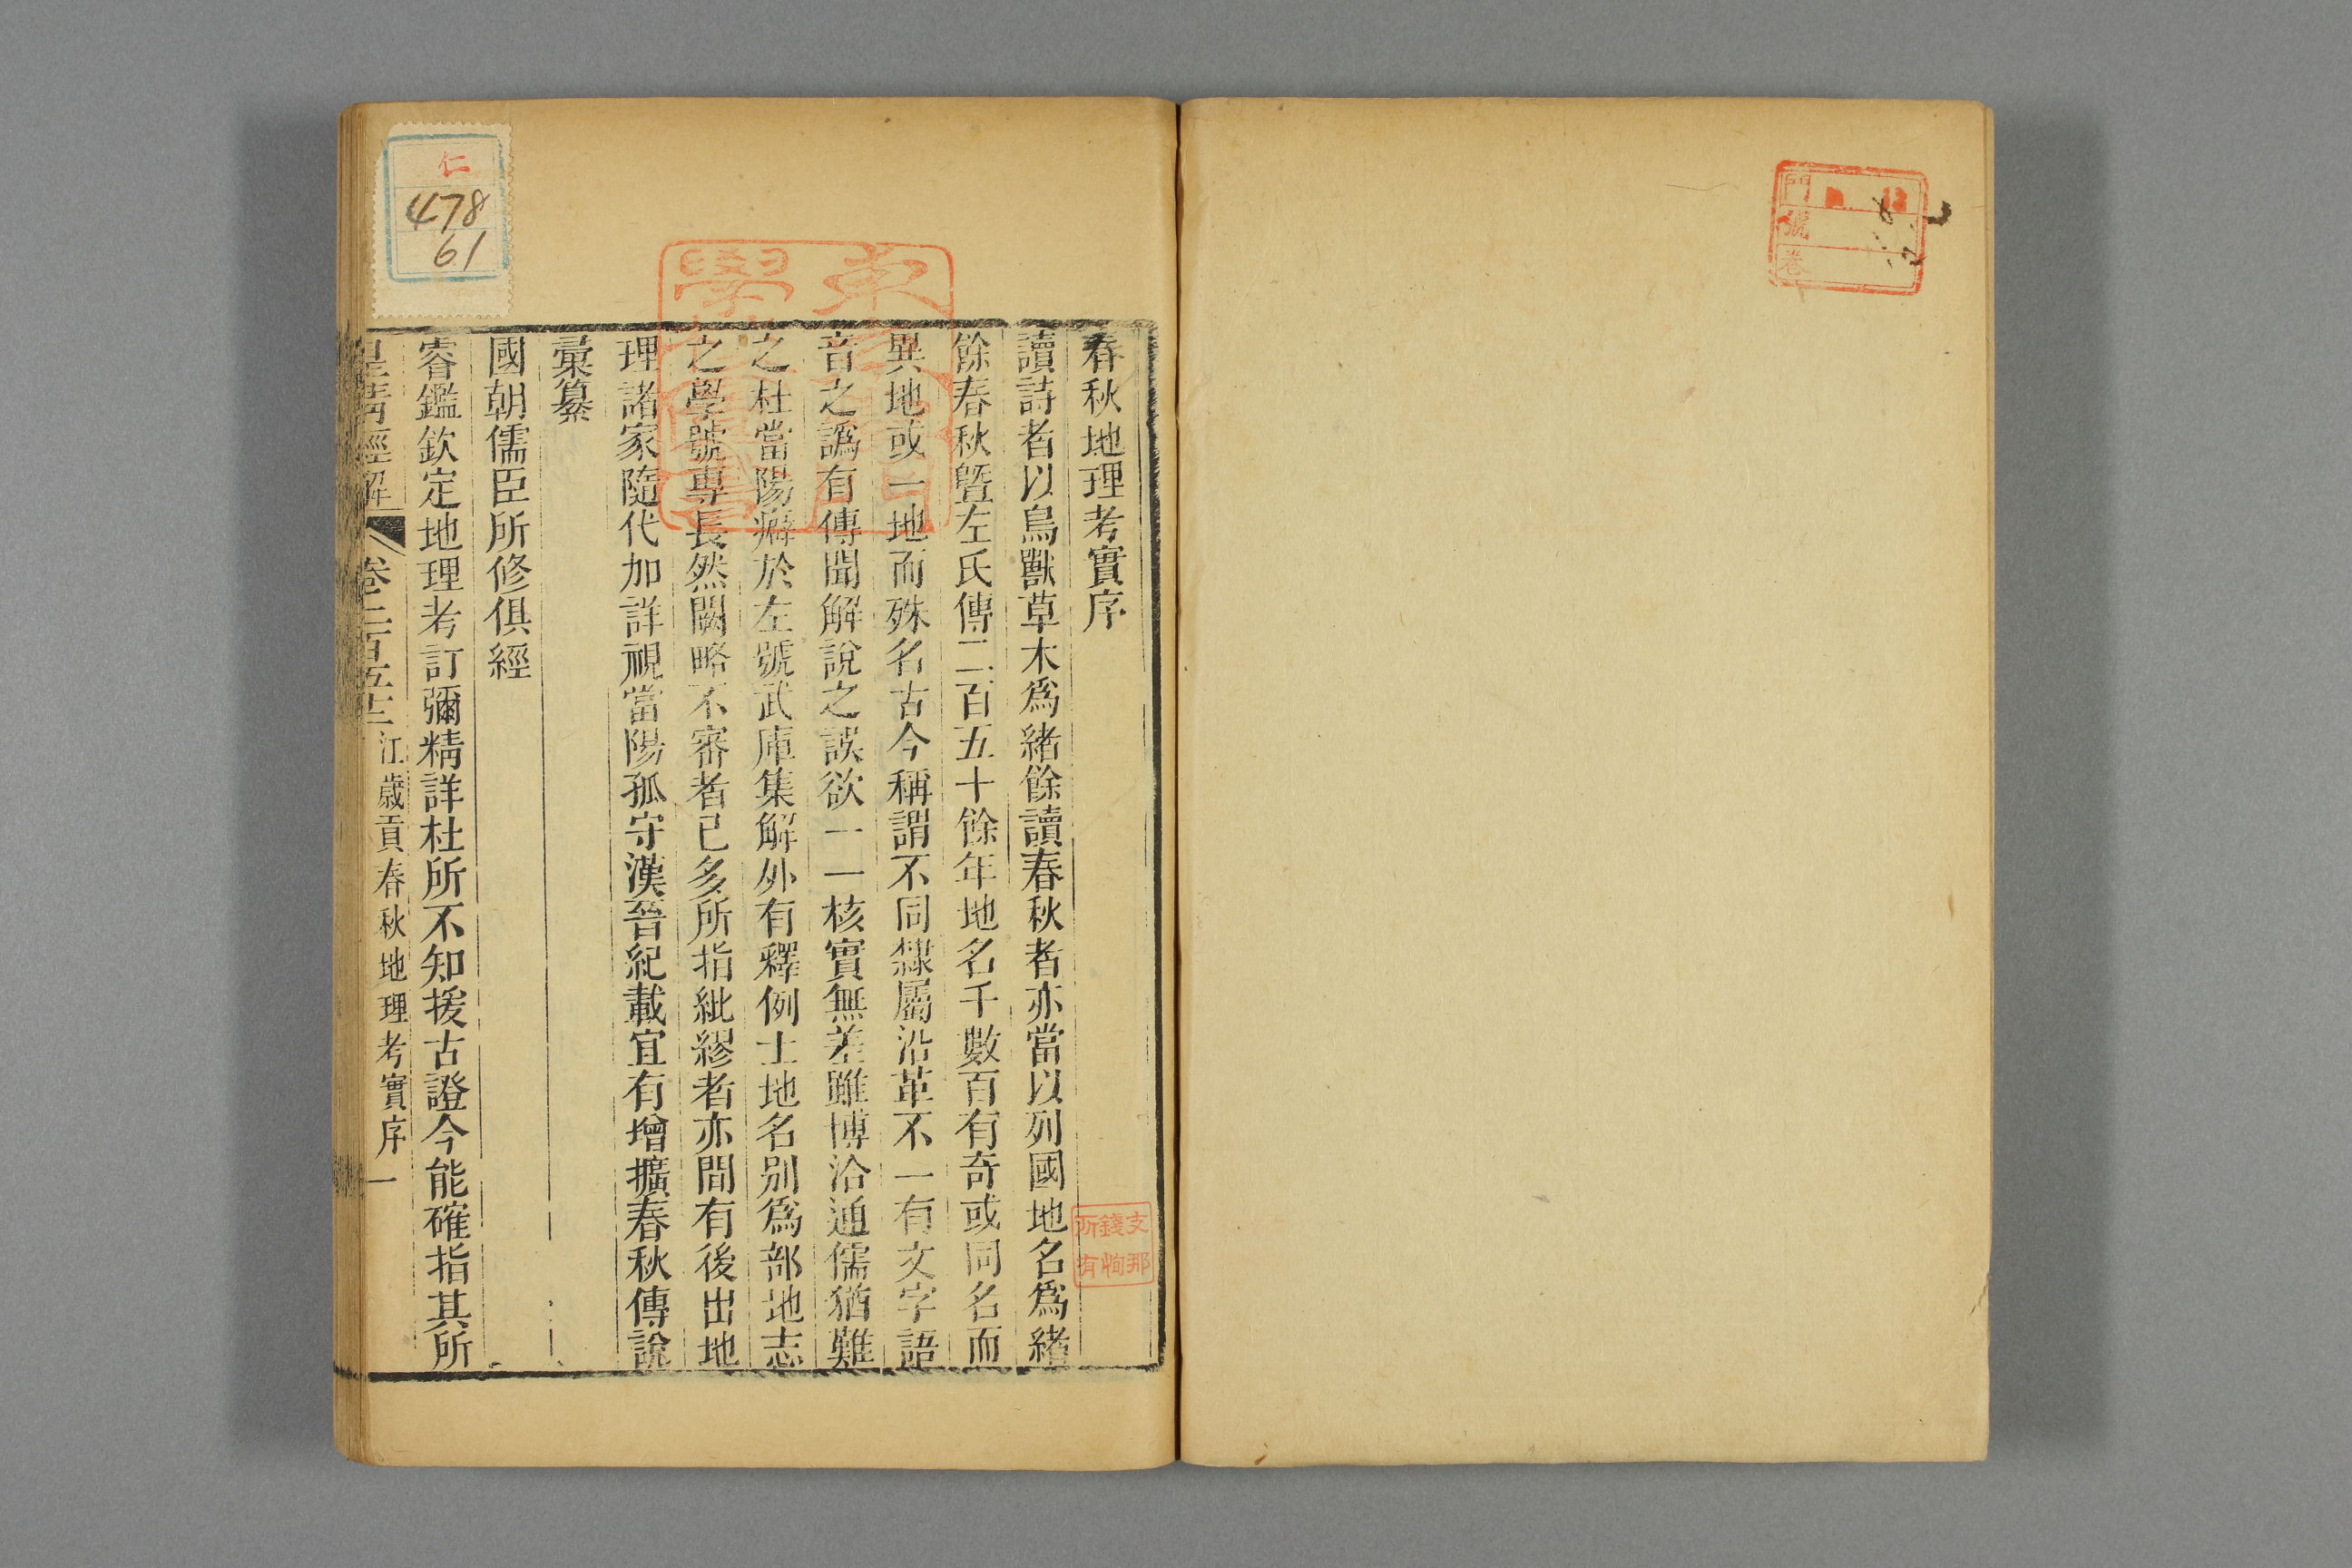 門
號
卷
春秋地理考實序
讀詩者以鳥獸草木爲緒餘讀春秋者亦當以列國地名爲緒
餘春秋曁左氏傳二百五十餘年地名千數百有奇或同名而
異地或一地而殊名古今稱謂不同隸屬沿革不一有文字語
音之譌有傳聞解說之誤欲一一核實無差雖博洽通儒猶難
之杜當陽癖於左號武庫集解外有釋例土地名別爲部地志
之學號專長然闕略不審者已多所指紕繆者亦間有後出地
理諸家隨代加詳視當陽孤守漢晉紀載宜有增擴春秋傳說
彙纂
國朝儒臣所修俱經
睿鑑欽定地理考訂彌精詳杜所不知援古證今能確指其所
皇清經解 卷二百五十二 江歲貢春秋地理考實序 一
支那
錢恂
所有
仁
478
61